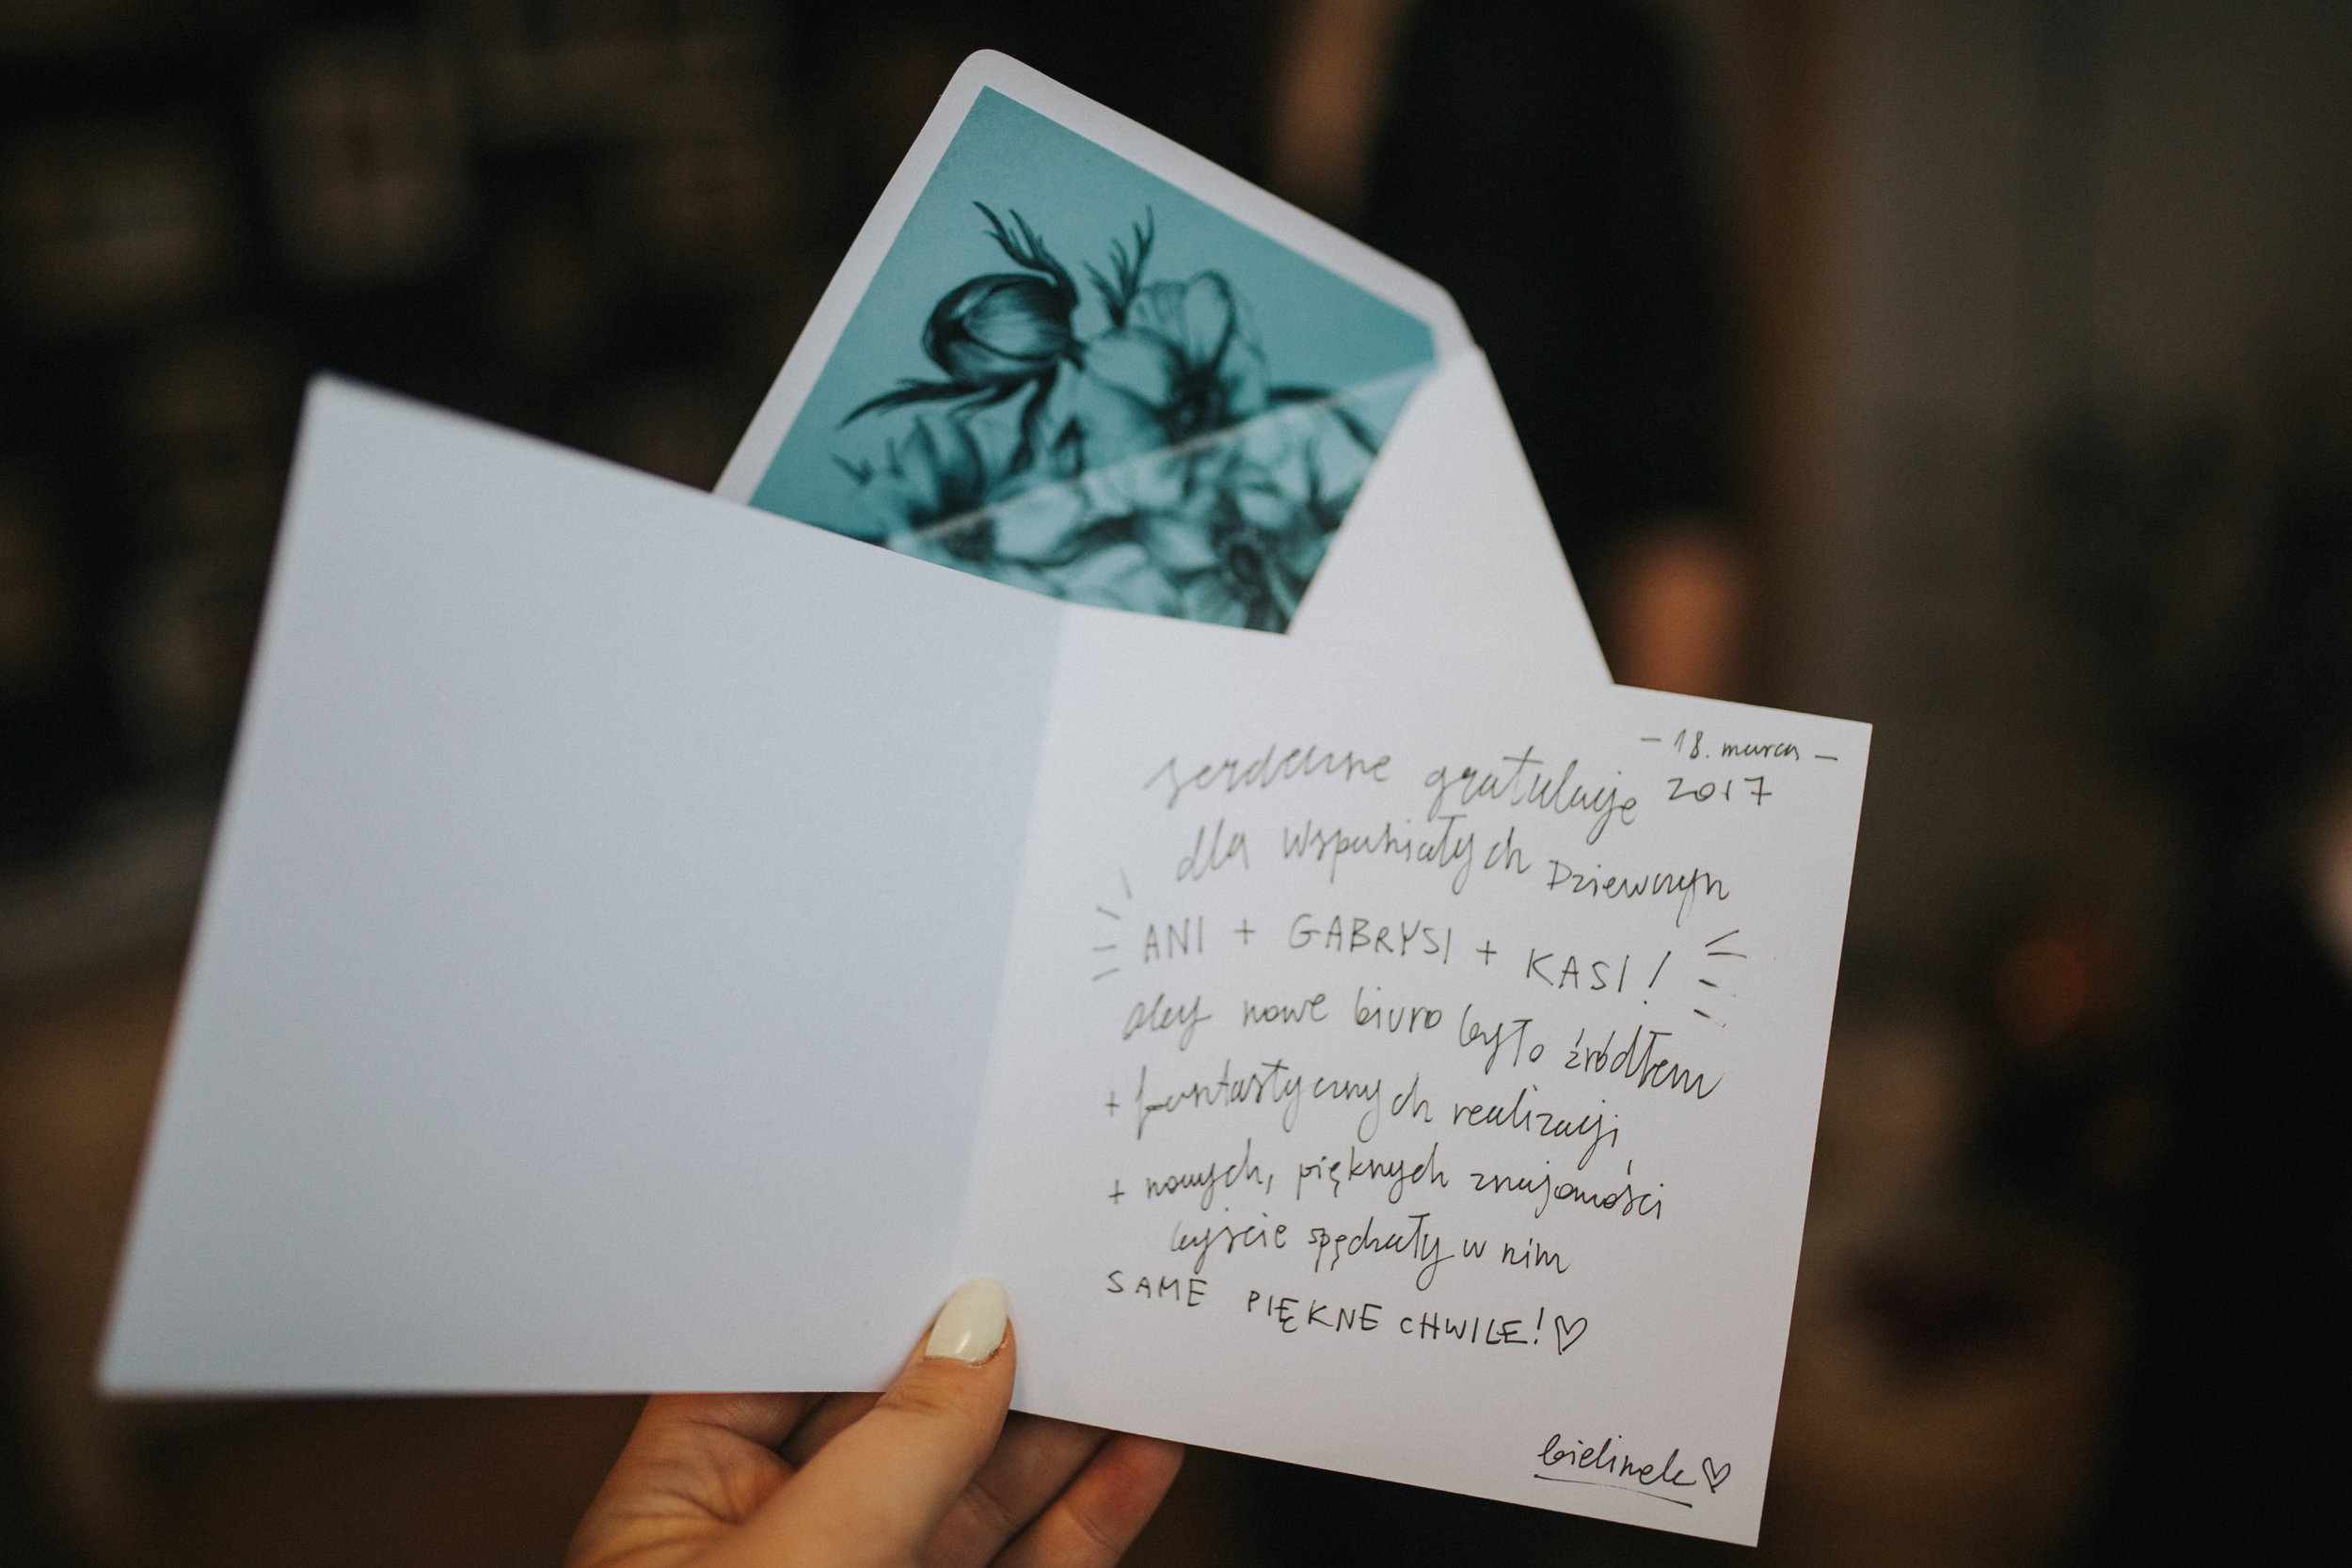 - 18. marca -
2017
serdeczne gratulacje
dla wspaniałych Dziewczyn
ANI + GABRYSI + KASI!
aby nowe biuro było źródłem
+ fantastycznych realizacji
+ nowych, pięknych znajomości
byście spędzały w nim
SAME PIĘKNE CHWILE! ♡
bielinek ♡